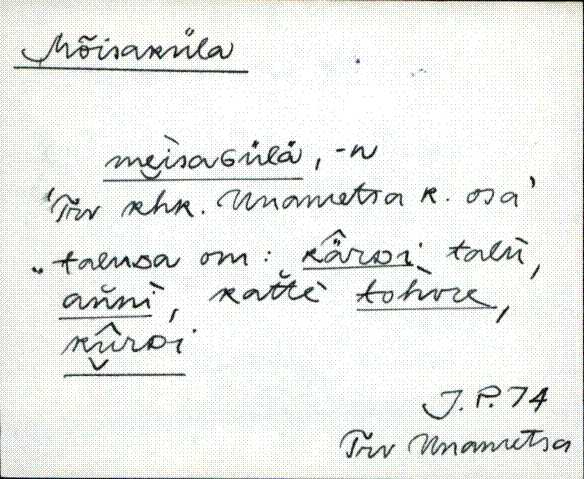 Mõisaküla
me̬ìsaGülä, -n
'Trv khk. Unametsa k. osa'
„taluDa om: kä̂rDi talù,
an̆nì, kat̆tè tohvre,
kû̬rDi
J. P. 74
Trv Unametsa